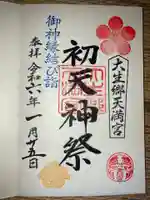 大生郷天満宮
初天神祭
御神縁結び詣
奉拝 令和六年 一月廿五日